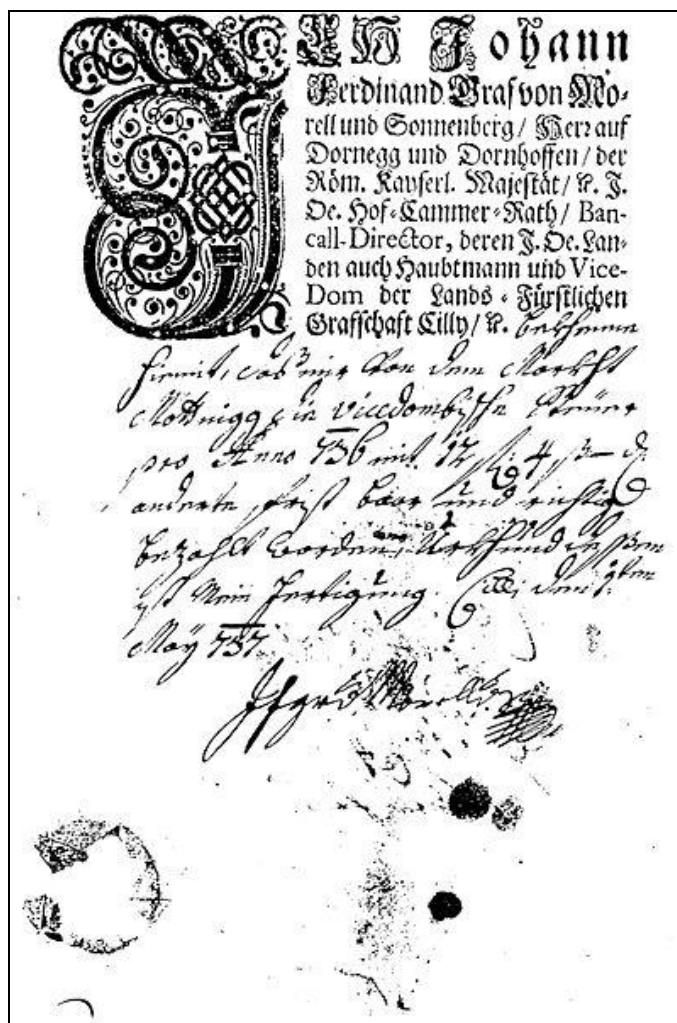 ICH Johann
Ferdinand Graf von Mo-
rell und Sonnenberg / Herr auf
Dornegg und Dornhoffen / der
Röm. Kayserl. Majestät / ꝛc. J.
Oe. Hof-Cammer-Rath / Ban-
call-Director, deren J. Oe. Lan-
den auch Haubtmann und Vice-
Dom der Lands-Fürstlichen
Grafschaft Cilly / ꝛc. bekhenne
hiemit, das mir von dem Markht
Möttnigg die vicedombische Steuer
pro Anno 736 mit 12 f: 4 ß d:
anderte frist baar und richtig
bezahlt worden, Urkhund dessen
ist Mein fertigung. Cilli den
May 737.